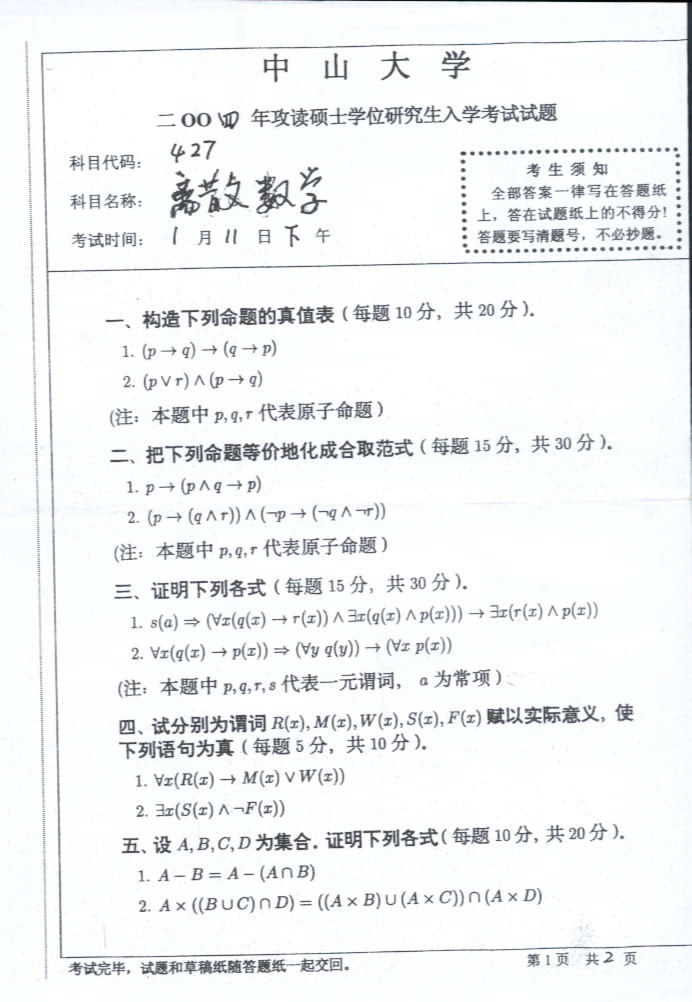 中 山 大 学
二 OO 四 年攻读硕士学位研究生入学考试试题
科目代码： 427
科目名称： 离散数学
考试时间： 1 月 11 日 下 午
考 生 须 知
全部答案一律写在答题纸
上，答在试题纸上的不得分!
答题要写清题号，不必抄题。
一、构造下列命题的真值表（每题 10 分，共 20 分）。
1. (p → q) → (q → p)
2. (p ∨ r) ∧ (p → q)
(注：本题中 p, q, r 代表原子命题）
二、把下列命题等价地化成合取范式（每题 15 分，共 30 分）。
1. p → (p ∧ q → p)
2. (p → (q ∧ r)) ∧ (¬p → (¬q ∧ ¬r))
(注：本题中 p, q, r 代表原子命题）
三、证明下列各式（每题 15 分，共 30 分）。
1. s(a) ⇒ (∀x(q(x) → r(x)) ∧ ∃x(q(x) ∧ p(x))) → ∃x(r(x) ∧ p(x))
2. ∀x(q(x) → p(x)) ⇒ (∀y q(y)) → (∀x p(x))
(注：本题中 p, q, r, s 代表一元谓词， a 为常项）
四、试分别为谓词 R(x), M(x), W(x), S(x), F(x) 赋以实际意义，使
下列语句为真（每题 5 分，共 10 分）。
1. ∀x(R(x) → M(x) ∨ W(x))
2. ∃x(S(x) ∧ ¬F(x))
五、设 A, B, C, D 为集合．证明下列各式（每题 10 分，共 20 分）。
1. A − B = A − (A ∩ B)
2. A × ((B ∪ C) ∩ D) = ((A × B) ∪ (A × C)) ∩ (A × D)
考试完毕，试题和草稿纸随答题纸一起交回。
第 1 页 共 2 页